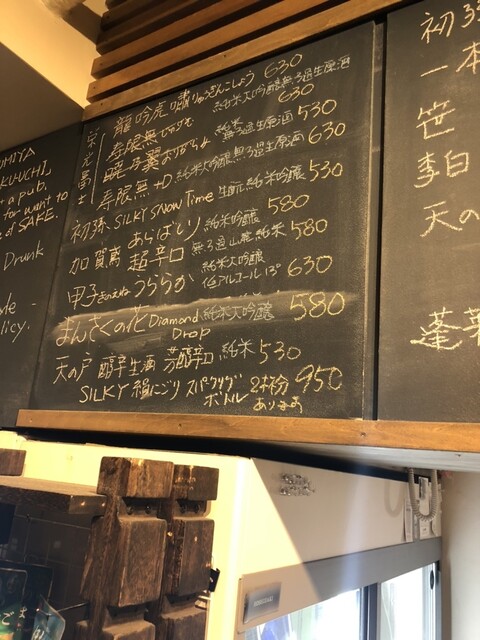 OMIYA
KU-UCHI
a pub.
for want to
of SAKE.
Drunk
yle -
licy.
龍吟虎嘯 りゅうぎんこしょう 630
寿限無 じゅげむ 純米大吟醸無ろ過生原酒 630
純米 無ろ過生原酒 530
寿限無 純米大吟醸無ろ過生原酒 630
初孫 SILKY SNOW Time 生酛純米吟醸 530
あらばしり 純米吟醸 580
加賀鳶 超辛口 無ろ過山廃純米 580
甲子 きのえね うららか 純米大吟醸 低アルコール13° 630
まんさくの花 Diamond Drop 純米大吟醸 580
天の戸 醇辛 生酒 芳醇辛口 純米 530
SILKY 絹にごり スパークリング ボトル 2杯分 あります 950
初孫
一本
笹
李白
天の
蓬莱